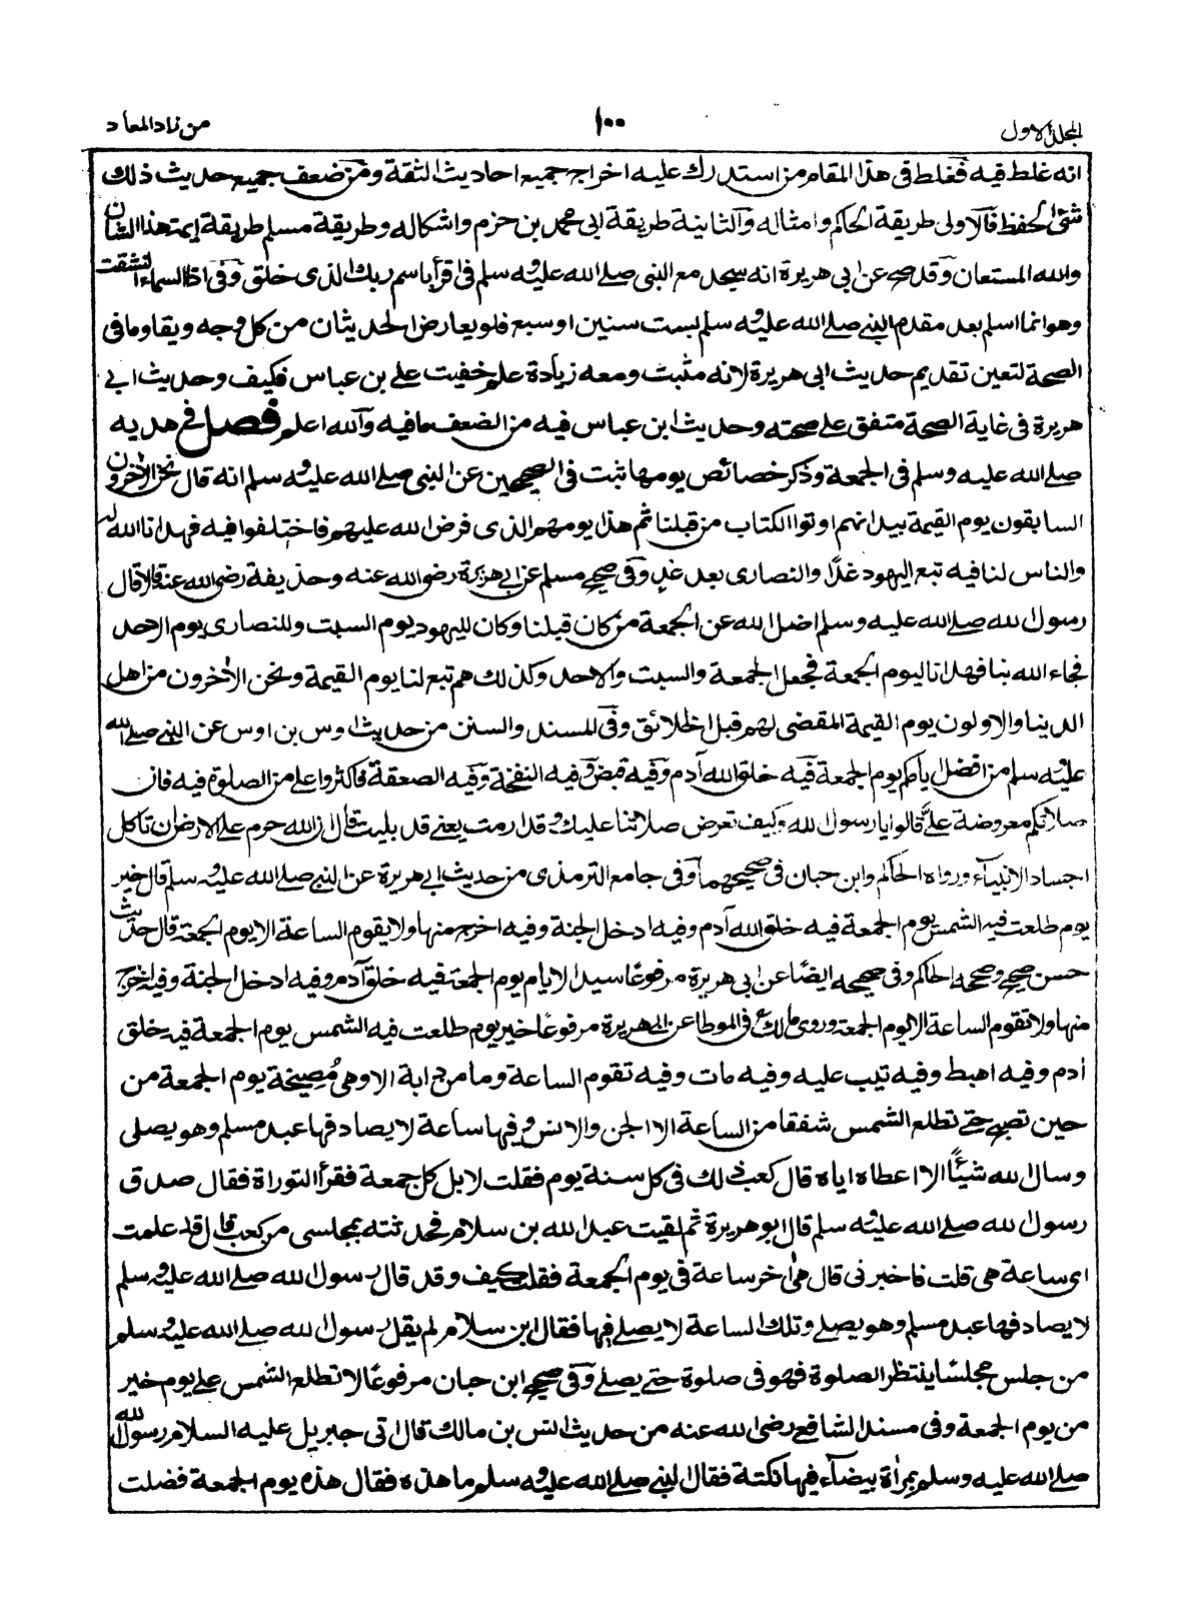 المجلد الاول
١٠٠
من زاد المعاد
انه غلط فيه فغلط فى هذا المقام من استدرك عليه اخراج جميع احاديث الثقة ومن ضعف جميع حديث ذلك
سئ الحفظ فالاولى طريقة الحاكم وامثاله والثانية طريقة ابى محمد بن حزم واشكاله وطريقة مسلم طريقة ايمة هذا الشان
والله المستعان وقد صح عن ابى هريرة انه سجد مع النبى صلے الله عليه وسلم فى اقرأ باسم ربك الذى خلق وفى اذا السماء انشقت
وهو انما اسلم بعد مقدم النبى صلے الله عليه وسلم بست سنين او سبع فلو يعارض الحديثان من كل وجه ويقاوما فى
الصحة لتعين تقديم حديث ابى هريرة لانه مثبت ومعه زيادة علم خفيت على بن عباس فكيف وحديث ابى
هريرة فى غاية الصحة متفق على صحته وحديث ابن عباس فيه من الضعف ما فيه والله اعلم فصل فى هديه
صلے الله عليه وسلم فى الجمعة وذكر خصائص يومها ثبت فى الصحيحين عن النبى صلے الله عليه وسلم انه قال نحن الاخرون
السابقون يوم القيمة بيد انهم اوتوا الكتاب من قبلنا ثم هذا يومهم الذى فرض الله عليهم فاختلفوا فيه فهدانا الله له
والناس لنا فيه تبع اليهود غدًا والنصارى بعد غدٍ وفى صحيح مسلم عن ابى هريرة رضى الله عنه وحذيفة رضى الله عنه قالا قال
رسول الله صلے الله عليه وسلم اضل الله عن الجمعة من كان قبلنا وكان لليهود يوم السبت وللنصارى يوم الاحد
فجاء الله بنا فهدانا ليوم الجمعة فجعل الجمعة والسبت والاحد وكذلك هم تبع لنا يوم القيمة ونحن الأخرون من اهل
الدينا والاولون يوم القيمة المقضى لهم قبل الخلائق وفى المسند والسنن من حديث اوس بن اوس عن النبى صلے الله
عليه وسلم من افضل ايامكم يوم الجمعة فيه خلق الله آدم وفيه قبض وفيه النفخة وفيه الصعقة فاكثروا على من الصلوة فيه فان
صلاتكم معروضة علىَّ قالوا يا رسول الله وكيف تعرض صلاتنا عليك وقد ارمت يعنى قد بليت قال ان الله حرم على الارض ان تاكل
اجساد الانبيآء ورواه الحاكم وابن حبان فى صحيحهما وفى جامع الترمذى من حديث ابى هريرة عن النبى صلے الله عليه وسلم قال خير
يوم طلعت فيه الشمس يوم الجمعة فيه خلق الله آدم وفيه ادخل الجنة وفيه اخرج منها ولا يقوم الساعة الا يوم الجمعة قال حديث
حسن صحيح وصححه الحاكم وفى صحيحه ايضًا عن ابى هريرة مرفوعًا سيد الايام يوم الجمعة فيه خلق آدم وفيه ادخل الجنة وفيه اخرج
منها ولا تقوم الساعة الا يوم الجمعة وروى مالك فى الموطا عن ابى هريرة مرفوعًا خير يوم طلعت فيه الشمس يوم الجمعة فيه خلق
أدم وفيه اهبط وفيه تيب عليه وفيه مات وفيه تقوم الساعة وما من دابة الا وهى مُصيخة يوم الجمعة من
حين تصبح حتى تطلع الشمس شفقا من الساعة الا الجن والانس وفيها ساعة لا يصادفها عبد مسلم وهو يصلى
وسال الله شيئًا الا اعطاه اياه قال كعب ذلك فى كل سنة يوم فقلت لا بل كل جمعة فقرأ التوراة فقال صدق
رسول الله صلے الله عليه وسلم قال ابو هريرة ثم لقيت عبد الله بن سلام فحدثته بمجلسى من كعب قال قد علمت
اى ساعة هى قلت فاخبرنى قال هى أخر ساعة فى يوم الجمعة فقلت كيف وقد قال رسول الله صلے الله عليه وسلم
لا يصادفها عبد مسلم وهو يصلى وتلك الساعة لا يصلى فيها فقال ابن سلام لم يقل رسول الله صلے الله عليه وسلم
من جلس مجلسًا ينتظر الصلوة فهو فى صلوة حتى يصلى وفى صحيح ابن حبان مرفوعًا لا تطلع الشمس على يوم خير
من يوم الجمعة وفى مسند الشافعى رضى الله عنه من حديث انس بن مالك قال اتى جبريل عليه السلام رسول الله
صلے الله عليه وسلم بمرأة بيضآء فيها نكتة فقال النبى صلے الله عليه وسلم ما هذه فقال هذه يوم الجمعة فضلت